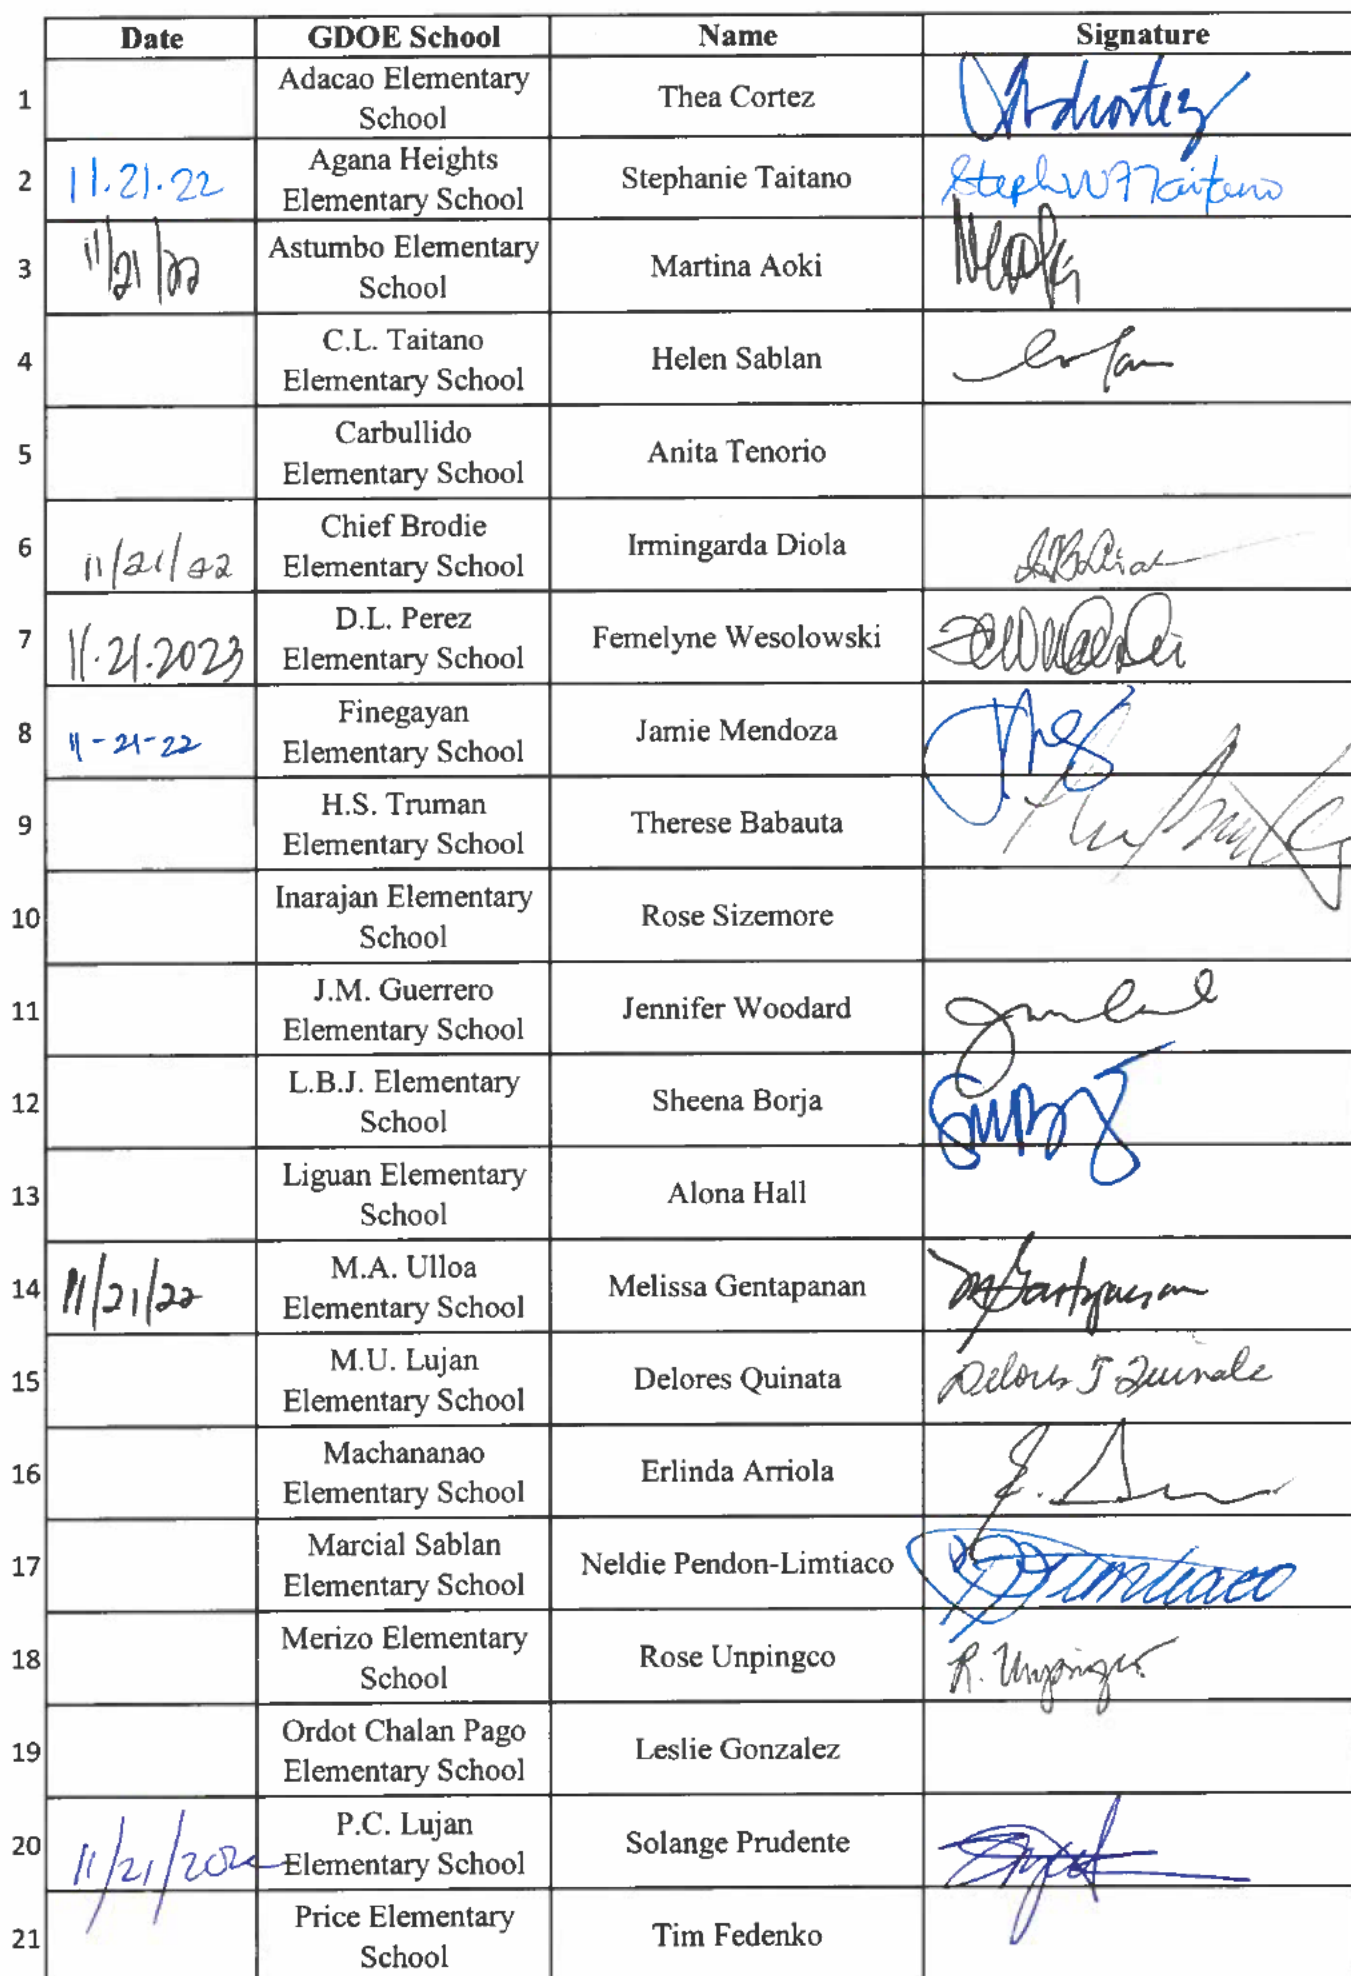 Date GDOE School Name Signature
1 Adacao Elementary School Thea Cortez
2 11.21.22 Agana Heights Elementary School Stephanie Taitano
3 11/21/22 Astumbo Elementary School Martina Aoki
4 C.L. Taitano Elementary School Helen Sablan
5 Carbullido Elementary School Anita Tenorio
6 11/21/22 Chief Brodie Elementary School Irmingarda Diola
7 11.21.2023 D.L. Perez Elementary School Femelyne Wesolowski
8 11-21-22 Finegayan Elementary School Jamie Mendoza
9 H.S. Truman Elementary School Therese Babauta
10 Inarajan Elementary School Rose Sizemore
11 J.M. Guerrero Elementary School Jennifer Woodard
12 L.B.J. Elementary School Sheena Borja
13 Liguan Elementary School Alona Hall
14 11/21/22 M.A. Ulloa Elementary School Melissa Gentapanan
15 M.U. Lujan Elementary School Delores Quinata Delores J Quinata
16 Machananao Elementary School Erlinda Arriola
17 Marcial Sablan Elementary School Neldie Pendon-Limtiaco
18 Merizo Elementary School Rose Unpingco R. Unpingco
19 Ordot Chalan Pago Elementary School Leslie Gonzalez
20 11/21/202 P.C. Lujan Elementary School Solange Prudente
21 Price Elementary School Tim Fedenko